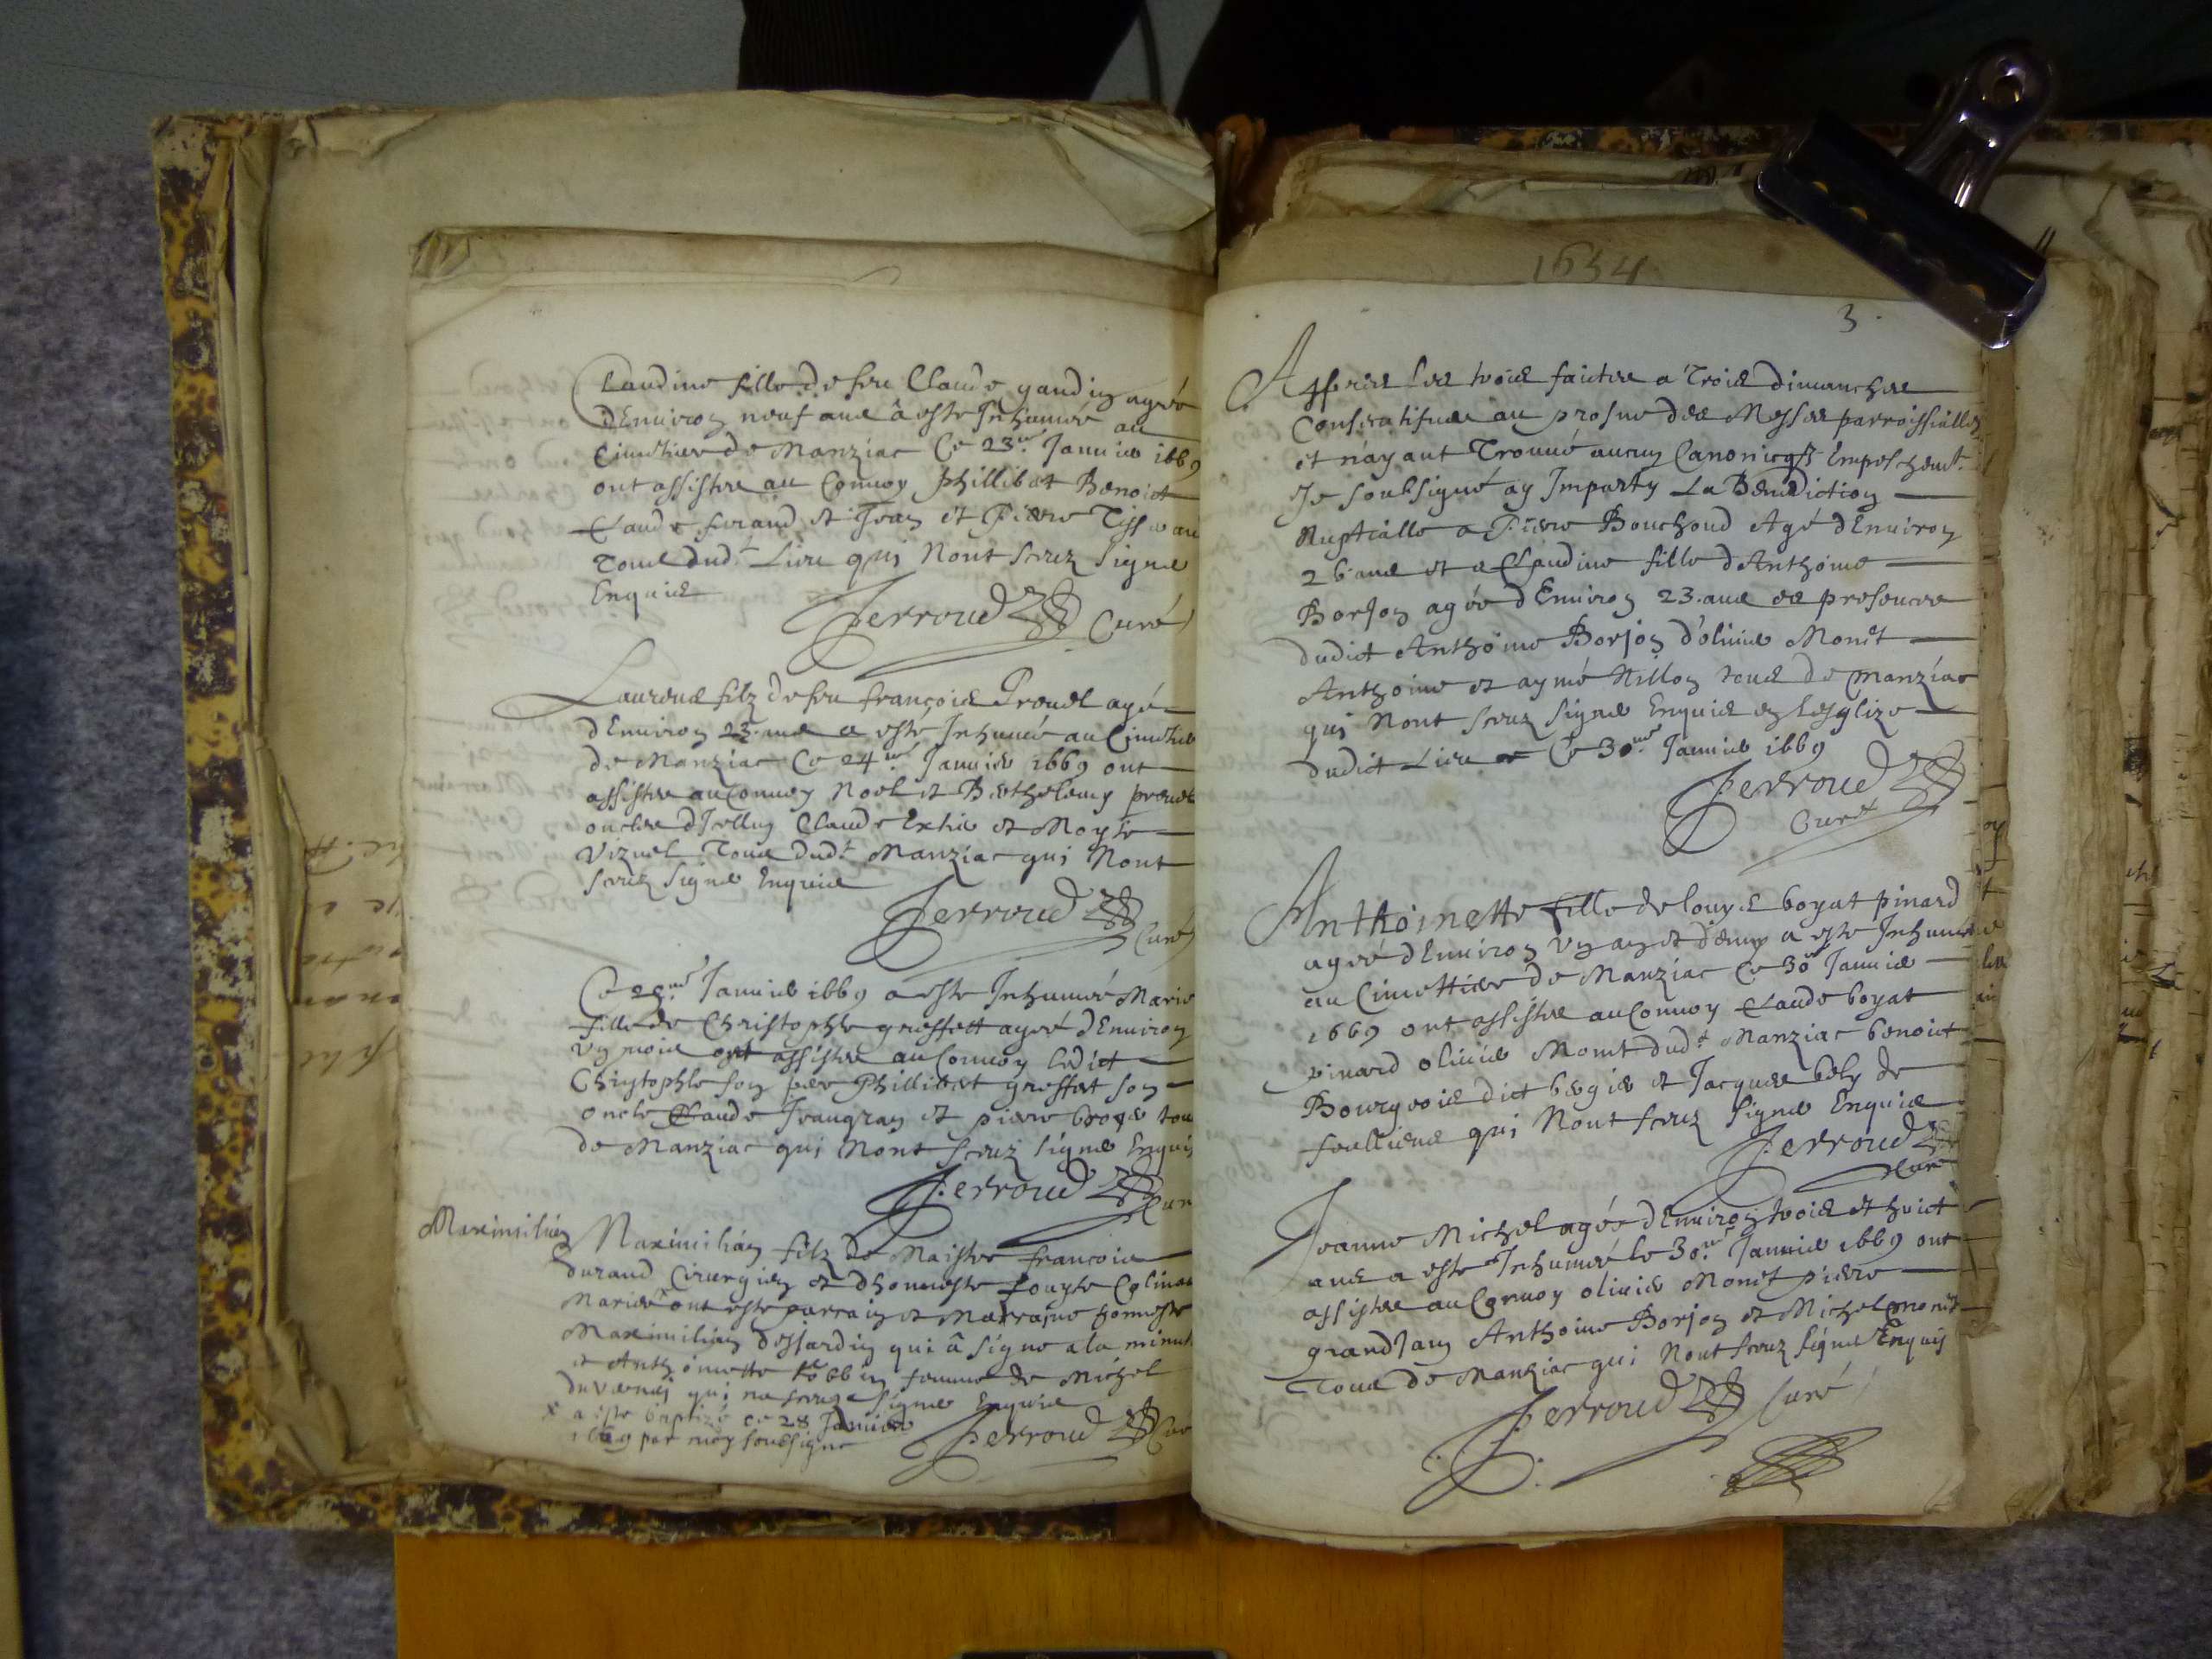 Claudine fille de feu Claude gandin agée
d'Environ neuf ans â esté Inhumée au
Cimetiere de Manziac Ce 23.me Januier 1669
ont assistez au Conuoy Phillibert Benoict
Claude ferand et Jean et Pierre
Tous dud.t Lieu qui Nont sceuz signer
Enquis
Perroud Curé
Laurens filz de feu françois Preuel agé
d'Enuiron 23. ans a esté Inhumé au Cimetiere
de Manziac Ce 24.me Januier 1669 ont
assistez au Conuoy Noel et Berthelemy preuel
oncles d'Icelluy Claude et Moyse
Vizuel Tous dud.t Manziac qui Nont
sceuz signer Enquis
Perroud Curé
Ce 28.me Januier 1669 a esté Inhumée Marie
fille de Christophle greffett agée d'Enuiron
Vng mois ont assistez au Conuoy ledict
Christophle son pere Phillibert greffet son
oncle Claude Jeangran et pierre broyer tous
de Manziac qui Nont sceuz signer Enquis
Perroud Cur
Maximilian
Maximilian filz de Maistre françois
durand Cirurgien et d'honneste Louyse
Mariez x ont esté parrain et Marraine honneste
Maximilian dessardin qui â signe a la minute
et Anthoinette Robbin femme de Michel
du vernay qui na sceuz signer Enquise
x a este baptizé ce 28 Januier
1669 par moy soubsigne
Perroud Cur
1634
3.
Appres les trois faictes a Trois dimanches
Consecutifues au prosne des Messes parroissialles
et n'ayant Trouué aucung Canonicq Empeschemt.
Je soubsigné ay Imparty La Benediction
Nuptialle a Pierre Bouchoud Agé d'Enuiron
26 ans et a Claudine fille d'Anthoine
Borjon agée d'Enuiron 23. ans es presences
dudict Anthoine Borjon d'oliuier Monet
Anthoine et aymé Nillon tous de Manziac
qui Nont sceuz signer Enquis en Lesglize
dudict Lieu Ce 30.me Januier 1669
Perroud
Curé
Anthoinette fille de louys boyat pinard
agée d'Enuiron Vng an et demy a esté Inhumée
au Cimettiere de Manziac Ce 30.e Januier
1669 ont assistez au Conuoy Claude boyat
pinard oliuier Monet dud.t Manziac benoict
Bourgeois dict bergier et Jacques bely de
feulliens qui Nont sceuz signer Enquis
Perroud
Cur
Jeanne Michel agée d'Enuiron trois et huict
ans a esté Inhumée le 30.me Januier 1669 ont
assistez au Conuoy oliuier Monet pierre
grandJean Anthoine Borjon et Michel monet
Tous de Manziac qui Nont sceuz signer Enquis
Perroud Curé